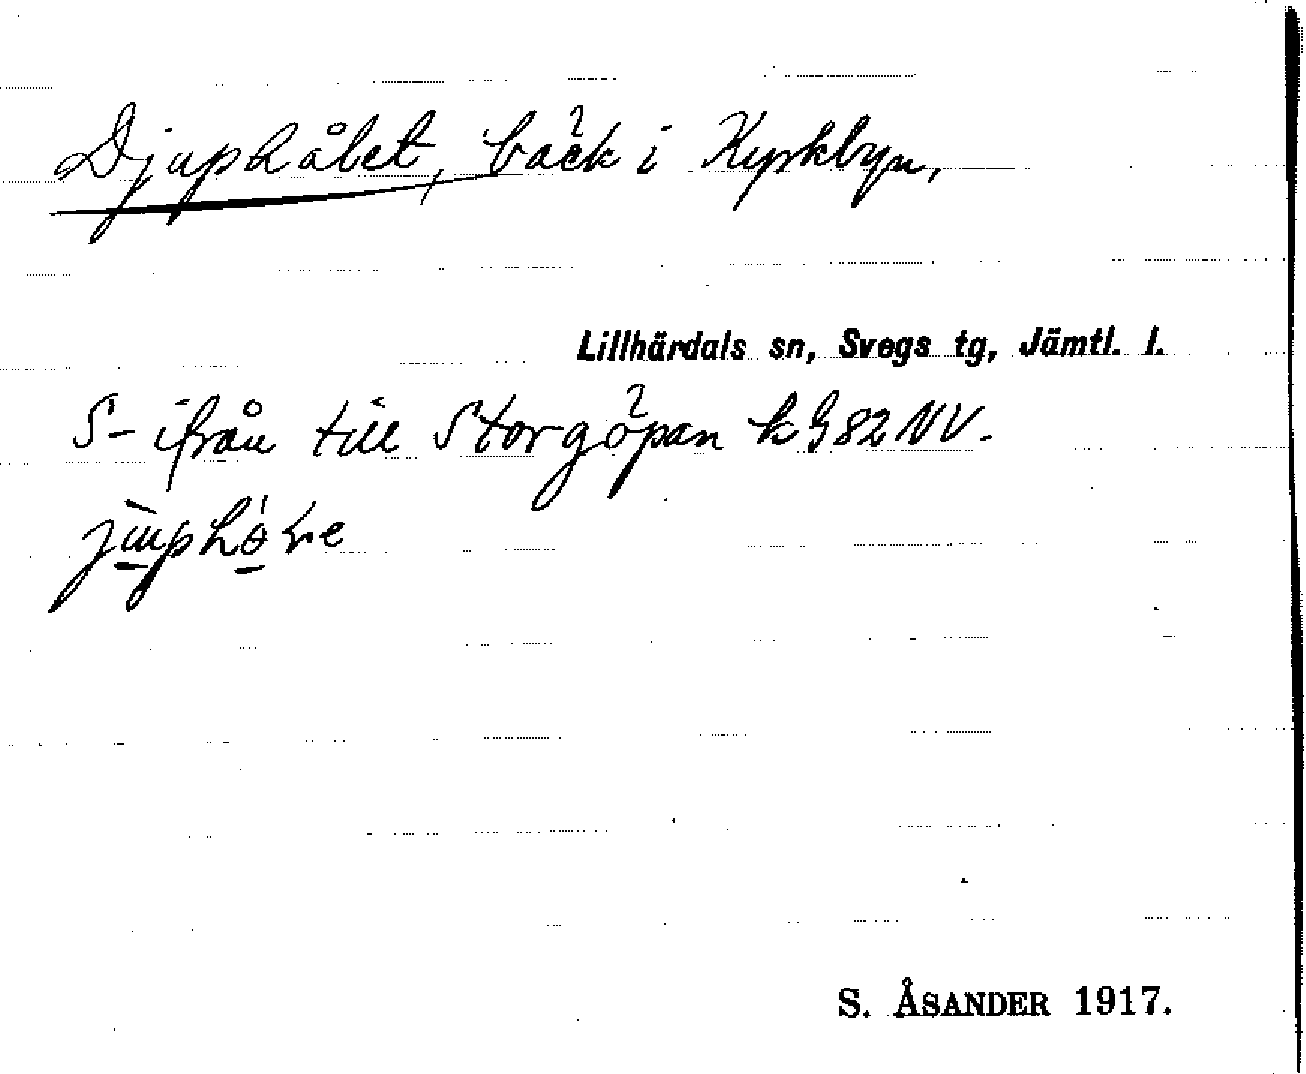 Djuphålet, bäck i Kyrkbyn,
Lillhärdals sn, Svegs tg, Jämtl. l.
S- ifrån till Storgöpan k G 82 NV.
S. ÅSANDER 1917.